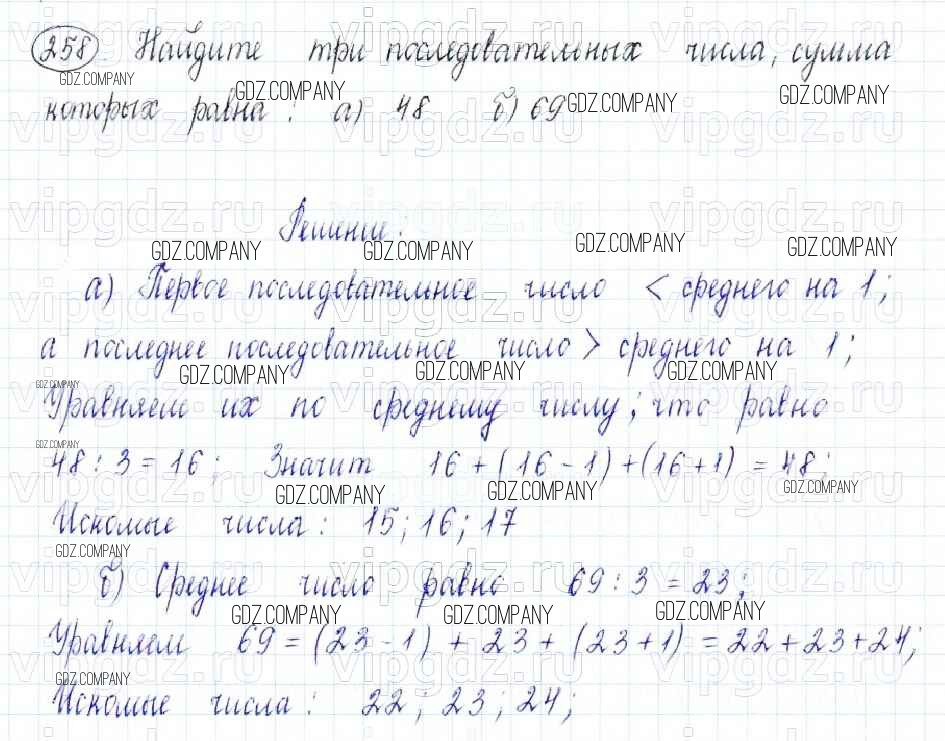 258 Найдите три последовательных числа, сумма
GDZ.COMPANY GDZ.COMPANY GDZ.COMPANY GDZ.COMPANY
которых равна: а) 48 б) 69
Решение:
GDZ.COMPANY GDZ.COMPANY GDZ.COMPANY GDZ.COMPANY
а) Первое последовательное число < среднего на 1;
а последнее последовательное число > среднего на 1;
GDZ.COMPANY GDZ.COMPANY GDZ.COMPANY GDZ.COMPANY
Уравняем их по среднему числу; что равно
GDZ.COMPANY
48 : 3 = 16; Значит 16 + (16 - 1) + (16 + 1) = 48;
GDZ.COMPANY GDZ.COMPANY GDZ.COMPANY
Искомые числа: 15; 16; 17
GDZ.COMPANY
б) Среднее число равно 69 : 3 = 23;
GDZ.COMPANY GDZ.COMPANY GDZ.COMPANY
Уравняем 69 = (23 - 1) + 23 + (23 + 1) = 22 + 23 + 24;
GDZ.COMPANY
Искомые числа: 22; 23; 24;
vipgdz.ru